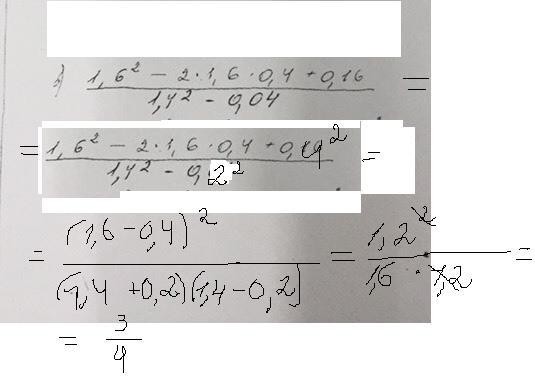 1,6² − 2·1,6·0,4 + 0,16 / 1,4² − 0,04 =
= 1,6² − 2·1,6·0,4 + 0,4² / 1,4² − 0,2² =
= (1,6 − 0,4)² / (1,4 + 0,2)(1,4 − 0,2) = 1,2² / 1,6 · 1,2 =
= 3/4